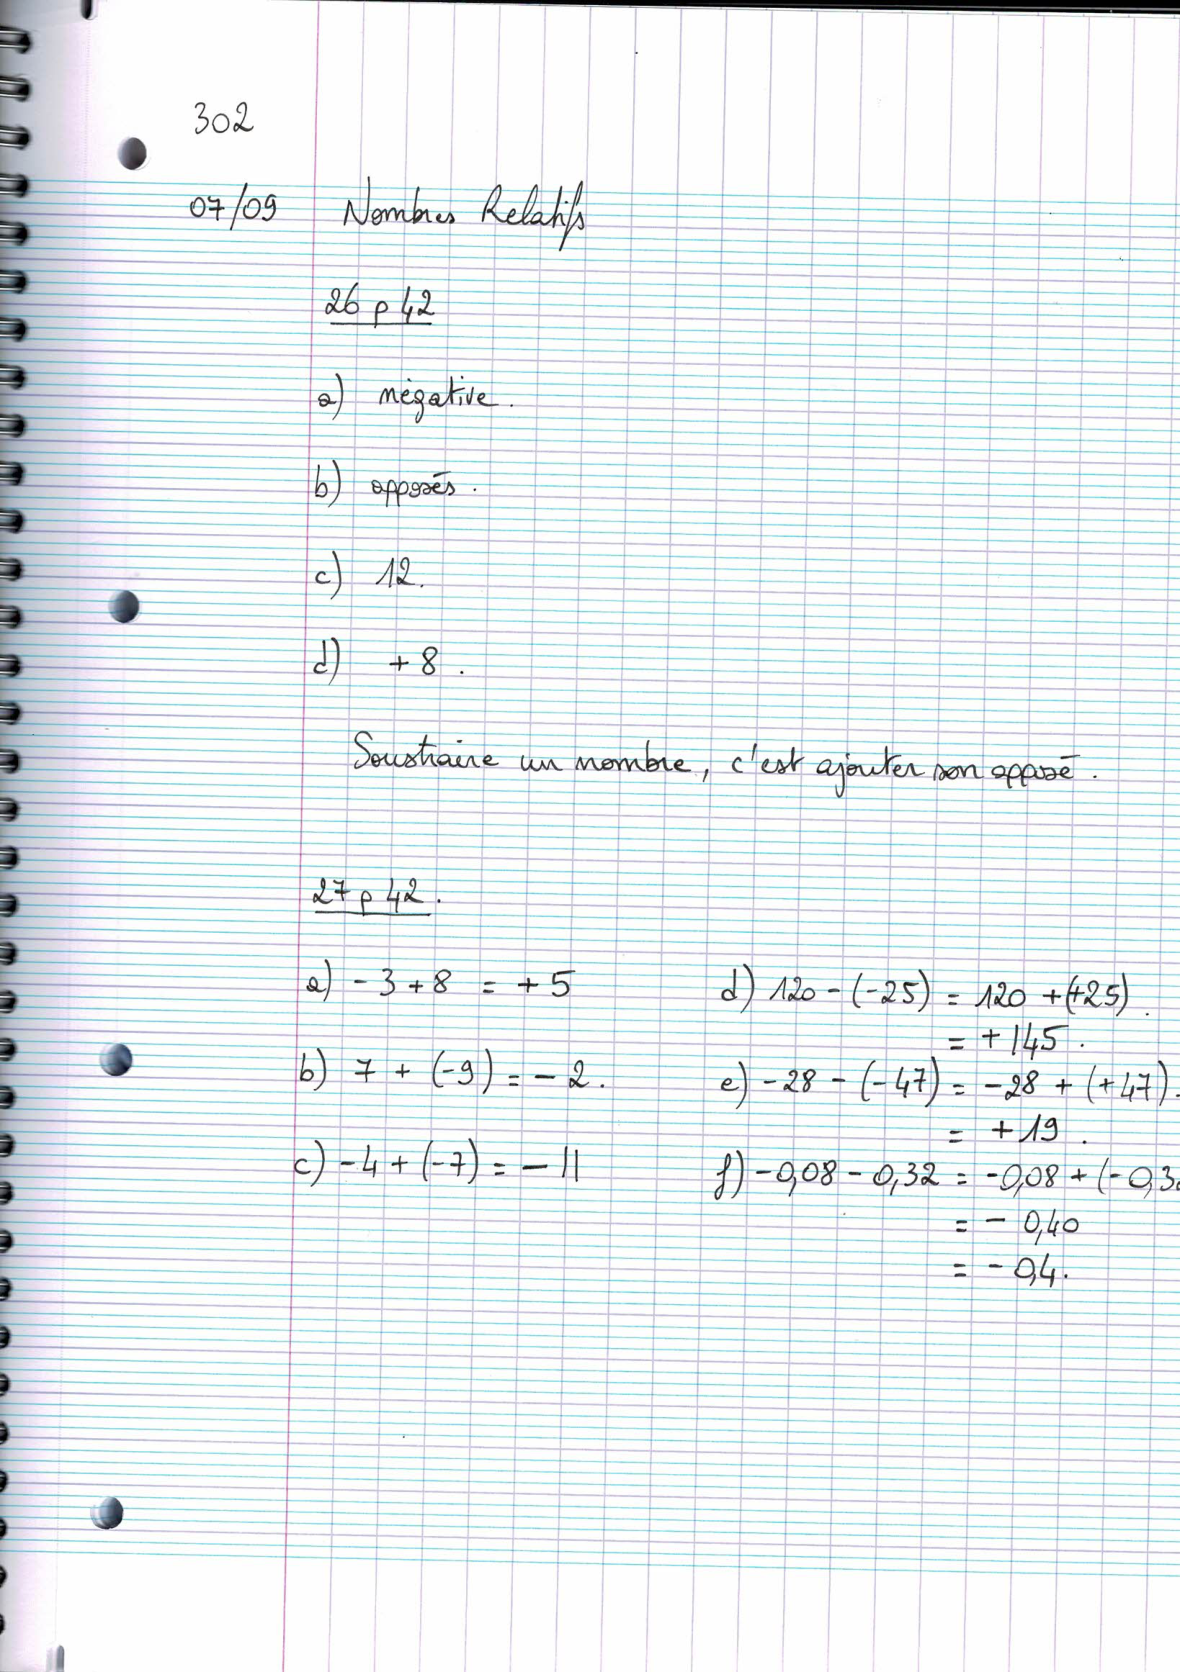 302
07/09 Nombres Relatifs
26 p 42
a) négative.
b) opposés.
c) 12.
d) +8.
Soustraire un nombre, c'est ajouter son opposé.
27 p 42.
a) -3+8 = +5
b) 7 + (-9) = -2.
c) -4 + (-7) = -11
d) 120 - (-25) = 120 + (+25).
= +145.
e) -28 - (-47) = -28 + (+47).
= +19.
f) -0,08 - 0,32 = -0,08 + (-0,3
= - 0,40
= - 0,4.